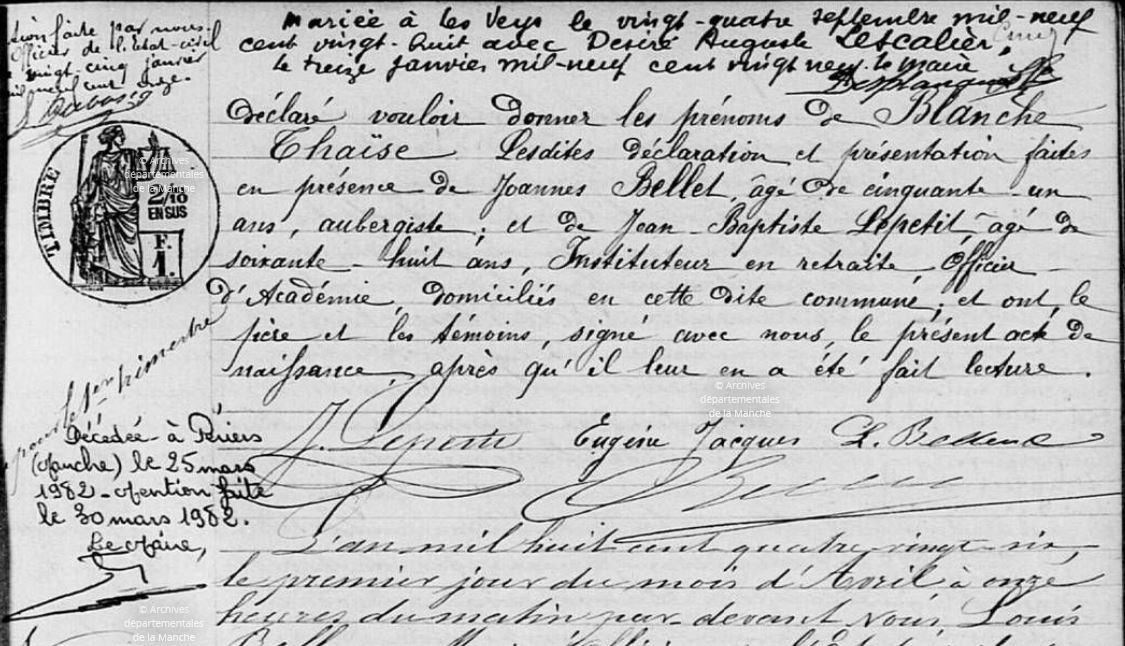 tion faite par nous
Officier de l'état-civil
vingt-cinq janvier
mil neuf cent onze.
Mariée à les Veys le vingt-quatre septembre mil-neuf
cent vingt-huit avec Désiré Auguste Lescalier,
le treize janvier mil-neuf cent vingt neuf. le maire
déclaré vouloir donner les prénoms de Blanche
Thaïse. Lesdites déclaration et présentation faites
en présence de Joannes Bellet, âgé de cinquante-un
ans, aubergiste; et de Jean-Baptiste Lepetit, âgé de
soixante-huit ans, Instituteur en retraite, Officier
d'Académie, domiciliés en cette dite commune; et ont le
père et les témoins, signé avec nous, le présent acte de
naissance, après qu'il leur en a été fait lecture.
TIMBRE
2/10
EN SUS
F.
1.
© Archives
départementales
de la Manche
Décédée à
(Manche) le 25 mars
1982 - Mention faite
le 30 mars 1982.
Le Maire,
© Archives
départementales
de la Manche
Eugène Jacques
L'an mil huit cent quatre vingt six,
le premier jour du mois d'Avril à onze
heures du matin par-devant Nous Louis
© Archives
départementales
de la Manche